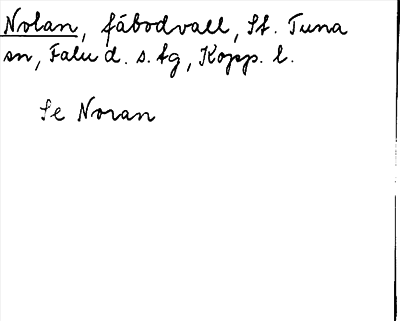 Nolan, fäbodvall, St. Tuna
sn, Falu d. s. tg, Kopp. l.
Se Noran